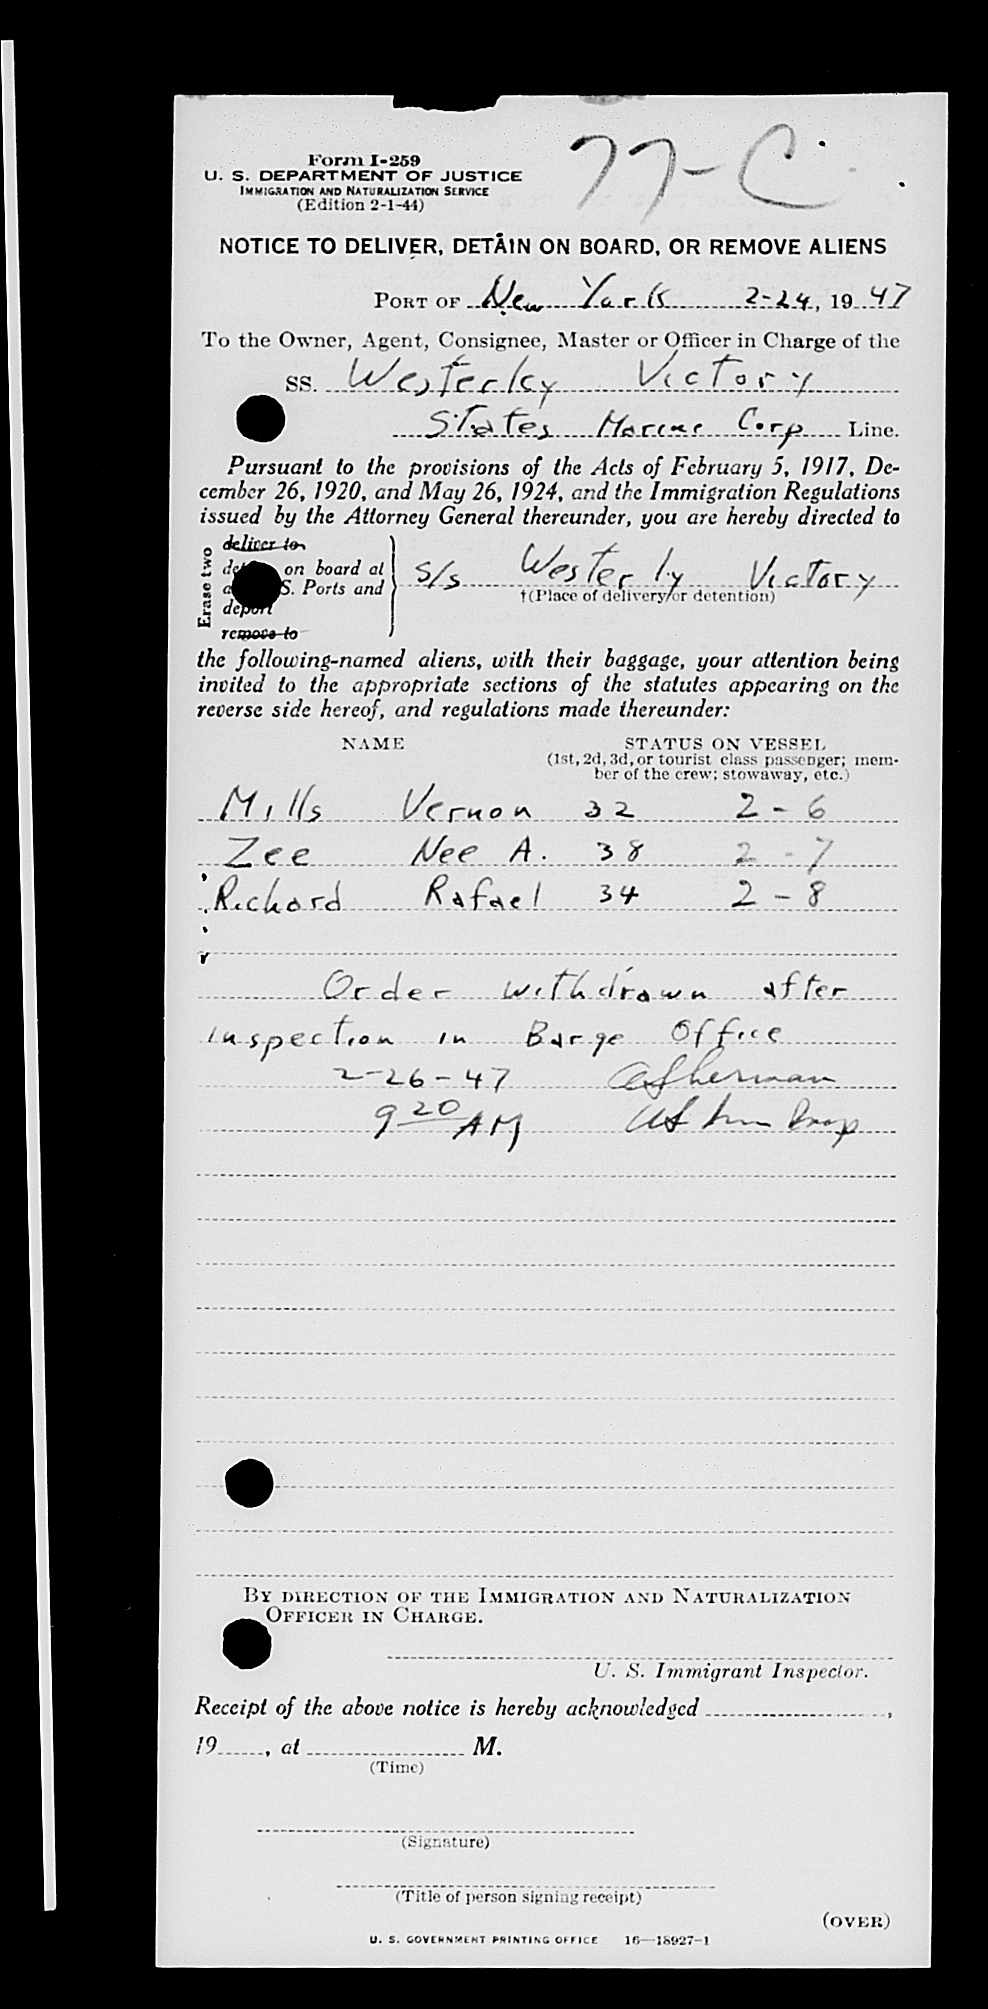 77-C
Form I-259
U. S. DEPARTMENT OF JUSTICE
IMMIGRATION AND NATURALIZATION SERVICE
(Edition 2-1-44)
NOTICE TO DELIVER, DETAIN ON BOARD, OR REMOVE ALIENS
PORT OF New York 2-24, 1947
To the Owner, Agent, Consignee, Master or Officer in Charge of the
SS. Westerley Victory
States Marine Corp Line.
Pursuant to the provisions of the Acts of February 5, 1917, De-
cember 26, 1920, and May 26, 1924, and the Immigration Regulations
issued by the Attorney General thereunder, you are hereby directed to
Erase two
deliver to
on board at
S. Ports and
deport
remove to
S/S Westerly Victory
†(Place of delivery or detention)
the following-named aliens, with their baggage, your attention being
invited to the appropriate sections of the statutes appearing on the
reverse side hereof, and regulations made thereunder:
NAME STATUS ON VESSEL
(1st, 2d, 3d, or tourist class passenger; mem-
ber of the crew; stowaway, etc.)
Mills Vernon 32 2-6
Zee Nee A. 38 2-7
Richard Rafael 34 2-8
Order withdrawn after
inspection in Barge Office
2-26-47
9 20 AM
BY DIRECTION OF THE IMMIGRATION AND NATURALIZATION
OFFICER IN CHARGE.
U. S. Immigrant Inspector.
Receipt of the above notice is hereby acknowledged ,
19 , at M.
(Time)
(Signature)
(Title of person signing receipt)
(OVER)
U. S. GOVERNMENT PRINTING OFFICE 16—18927-1